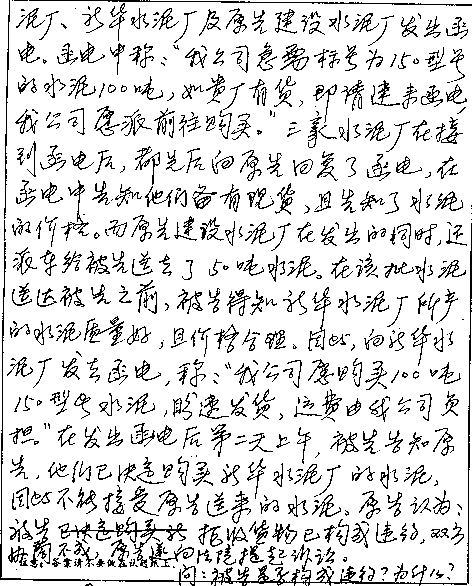 泥厂、新华水泥厂及原告建设水泥厂发出函
电。函电中称：“我公司急需标号为150型号
的水泥100吨，如贵厂有货，即请速来函电，
我公司愿派前往购买。”三家水泥厂在接
到函电后，都先后向原告回复了函电，在
函电中告知他们备有现货，且告知了水泥
的价格。而原告建设水泥厂在发出的同时，还
派车给被告送去了50吨水泥。在该批水泥
送达被告之前，被告得知新华水泥厂所产
的水泥质量好，且价格合理。因此，向新华水
泥厂发去函电，称：“我公司愿购买100吨
150型号水泥，盼速发货，运费由我公司负
担。”在发出函电后第二天上午，被告告知原
告，他们已决定购买新华水泥厂的水泥，
因此不能接受原告送来的水泥。原告认为：
被告已决定购买新 拒收货物已构成违约，双方
协商不成，原告遂向法院提起诉讼。
问：被告是否构成违约？为什么？